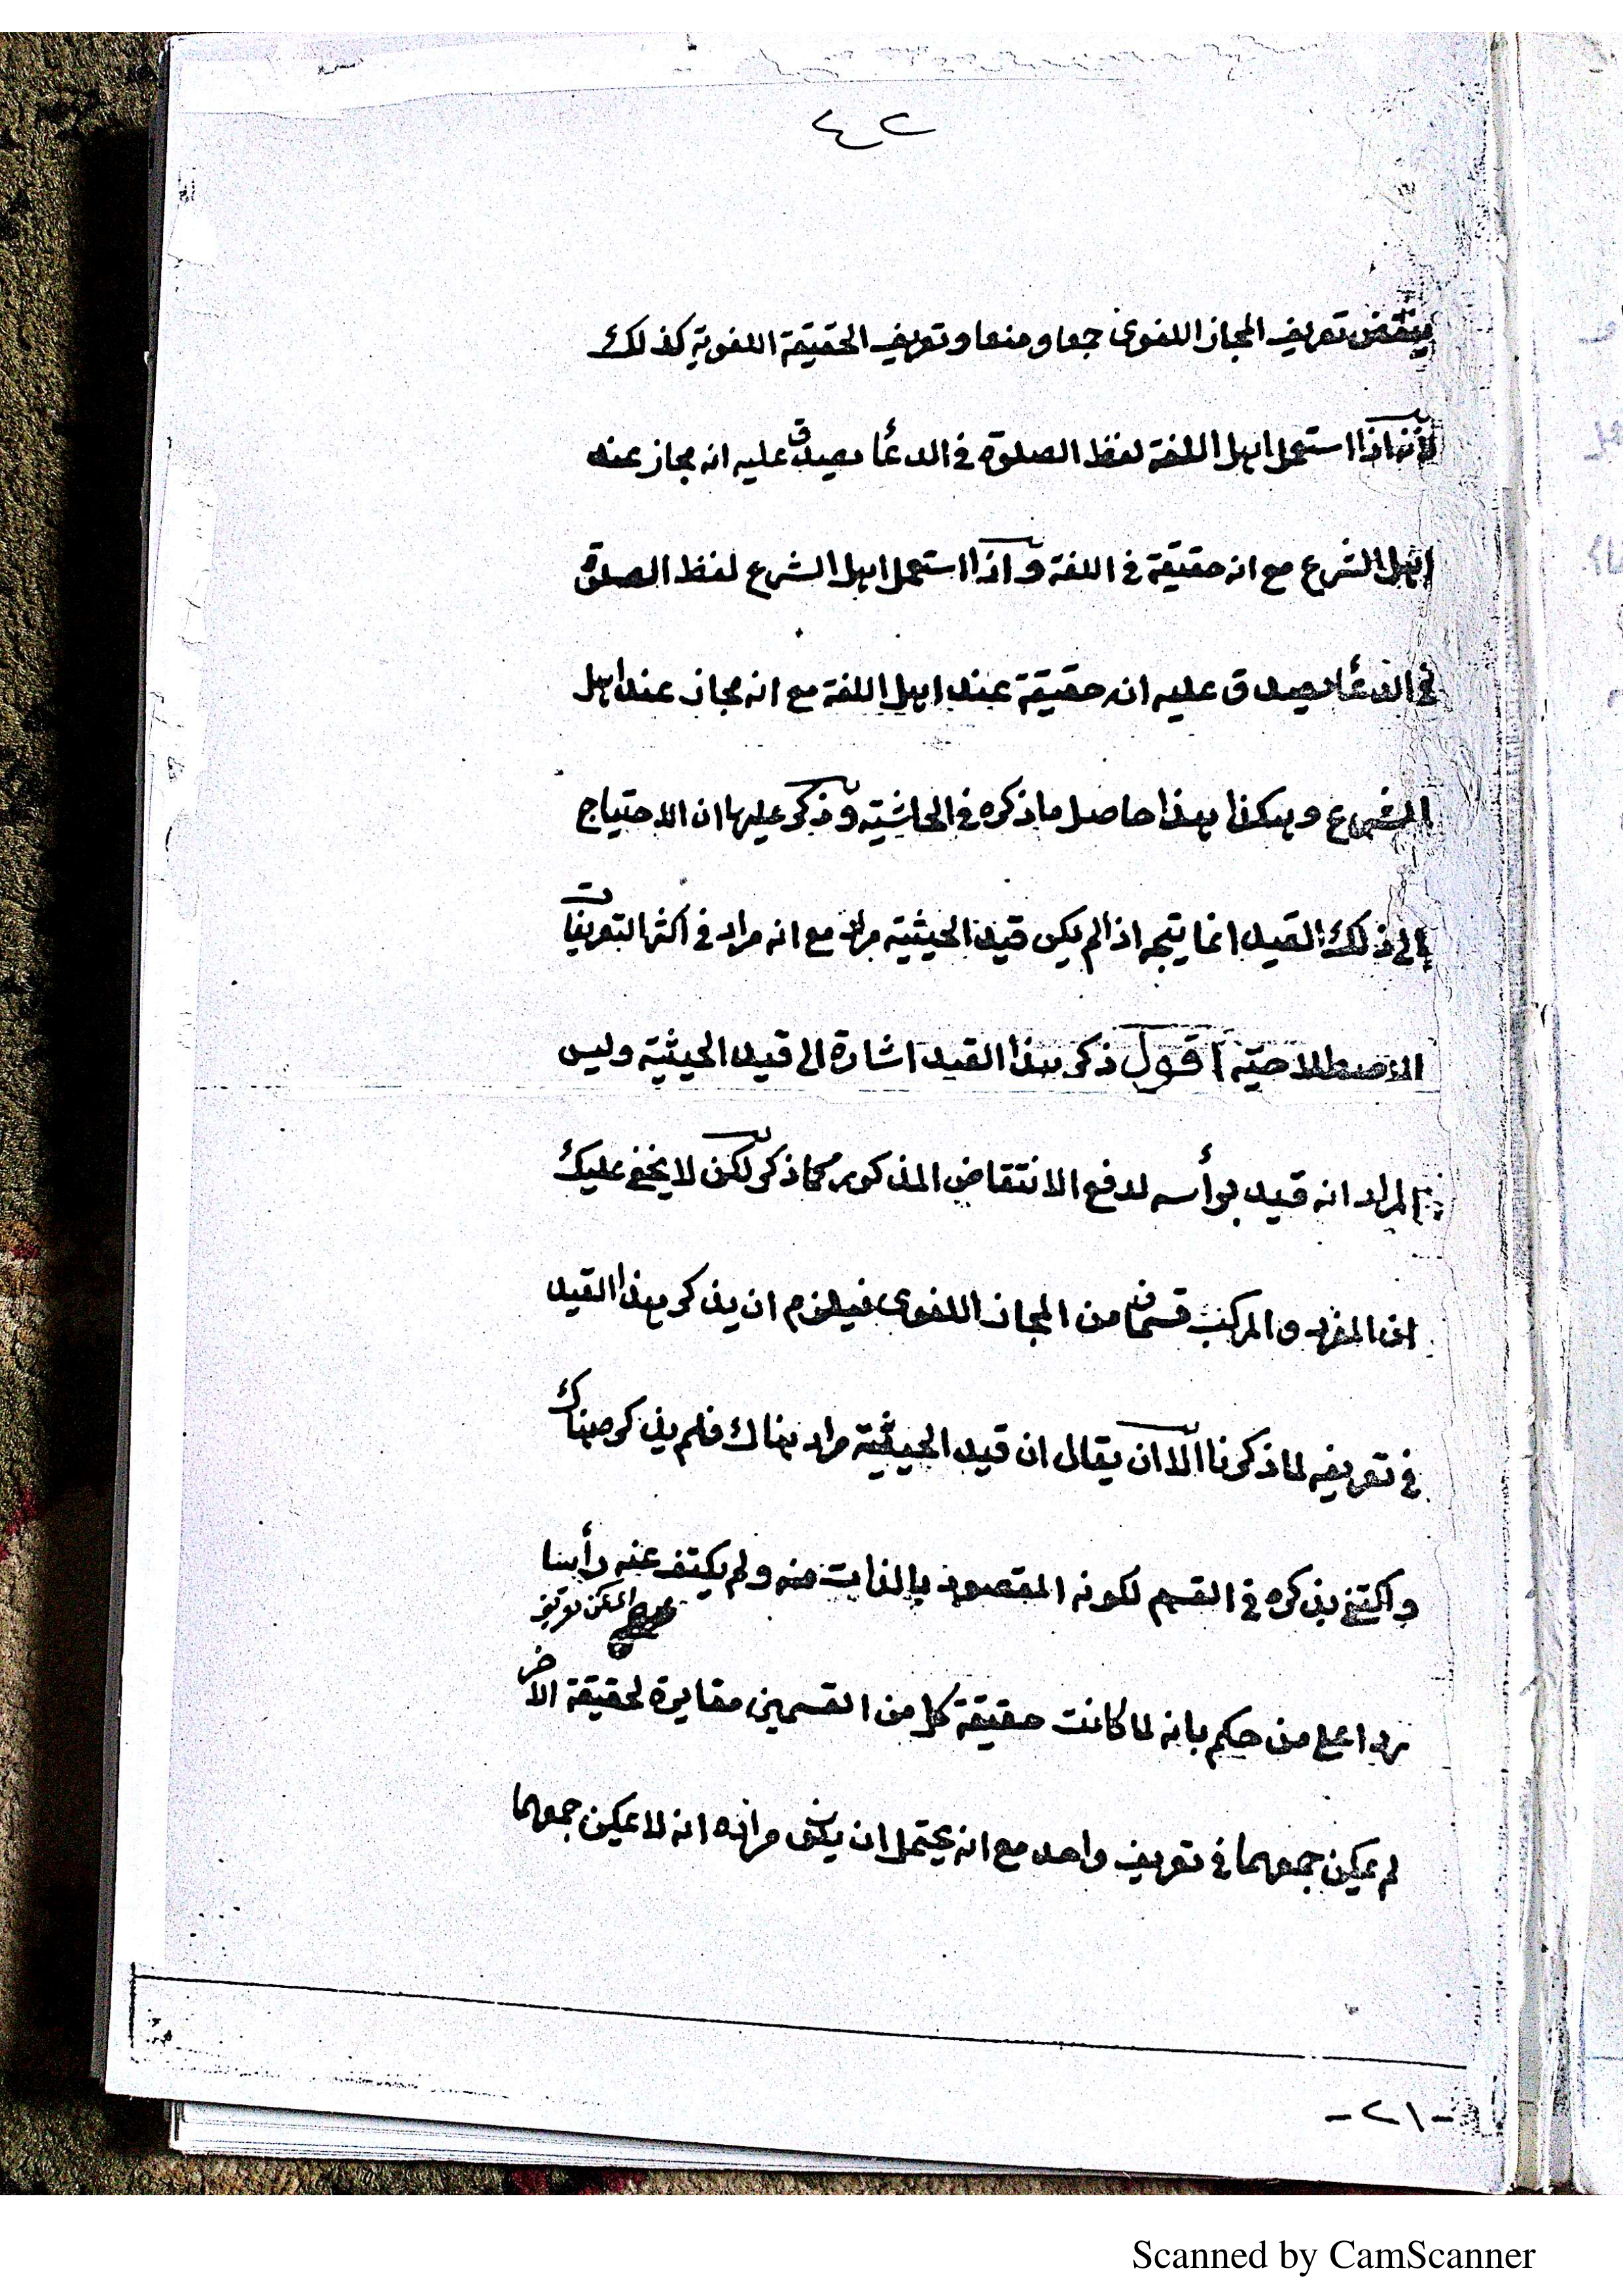 ٤٢
ينتقض تعريف المجاز اللغوى جمعا ومنعا وتعريف الحقيقة اللغوية كذلك
لانه اذا استعمل اهل اللغة لفظ الصلوة فى الدعأ يصدق عليه انه مجاز عند
اهل الشرع مع انه حقيقة فى اللغة و اذا استعمل اهل الشرع لفظ الصلوة
فى الدعأ يصدق عليه انه حقيقة عند اهل اللغة مع انه مجاز عند اهل
الشرع وهكذا هذا حاصل ما ذكره فى الحاشية و ذكر عليها ان الاحتياج
الى ذلك القيد انما يتجه اذا لم يكن قيد الحيثية مراد مع انه مراد فى اكثر التعريفات
الاصطلاحية اقول ذكر هذا القيد اشارة الى قيد الحيثية وليس
المراد انه قيد برأسه لدفع الانتقاض المذكور كما ذكر لكن لا يخفى عليك
ان المفرد والمركب قسمان من المجاز اللغوى فيلزم ان يذكر هذا القيد
فى تعريفه لما ذكرنا الا ان يقال ان قيد الحيثية مراد هناك فلم يذكر هناك
واكتفى بذكره فى القسم لكونه المقصود بالذات منه ولم يكتف عنه رأسا
ردا على من حكم بانه لما كانت حقيقة كل من القسمين مغايرة لحقيقة الاخر
لم يمكن جمعهما فى تعريف واحد مع انه يحتمل ان يكون مراده انه لا يمكن جمعهما
-٢١-
Scanned by CamScanner